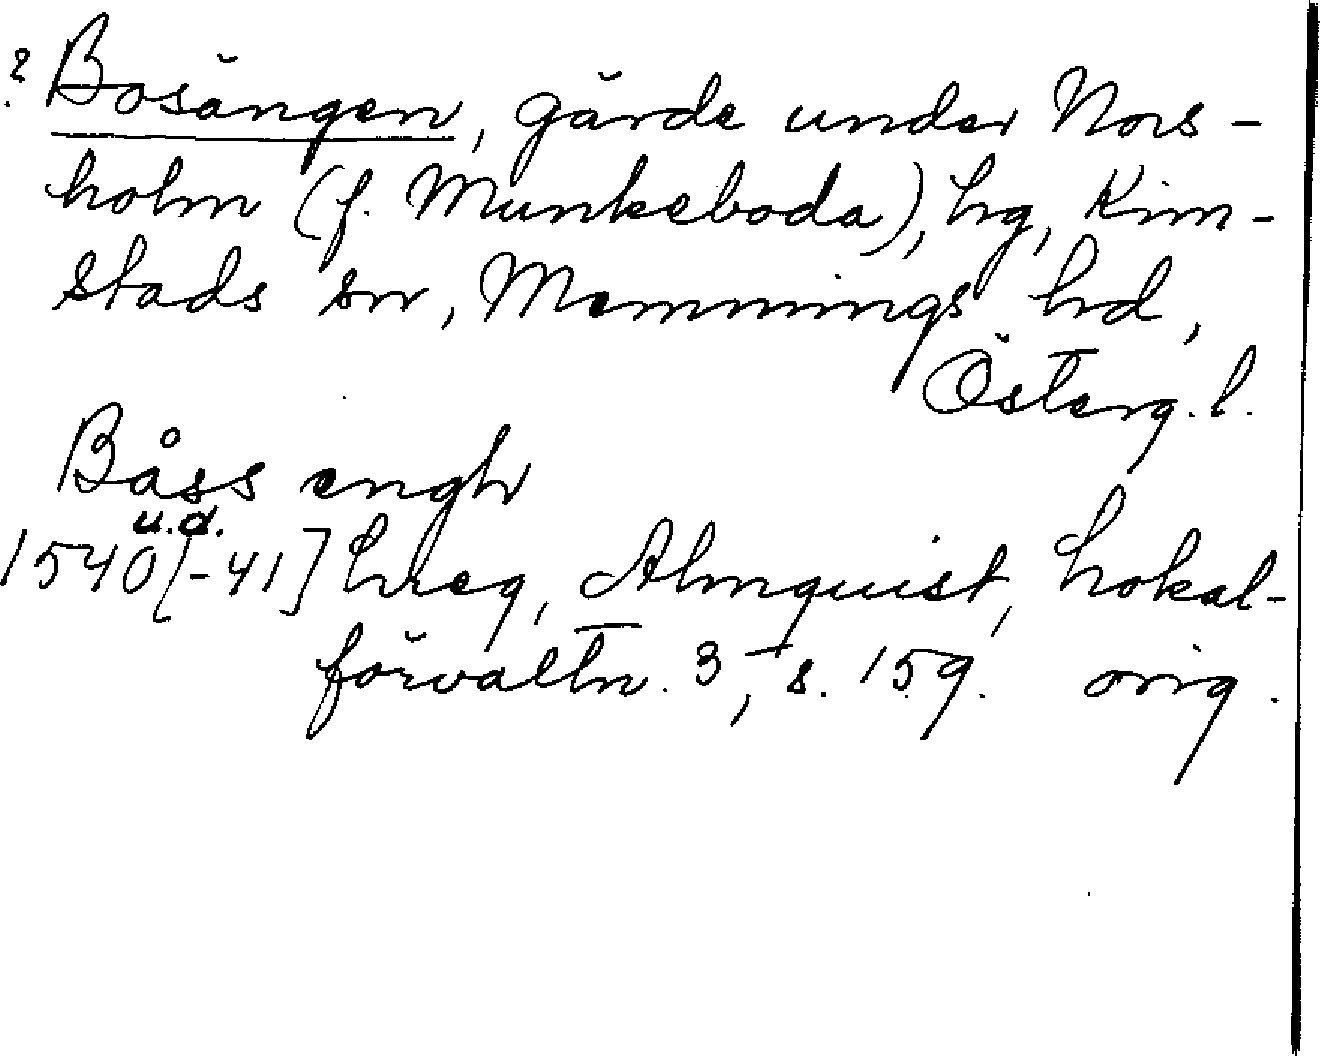 ? Bosängen, gärde under Nors-
holm (f. Munkeboda), hg, Kim-
stads sn, Memmings hd,
Österg. l.
Båss engh
u.d.
1540[-41] hreg, Almquist, Lokal-
förvaltn. 3, s. 159. orig.